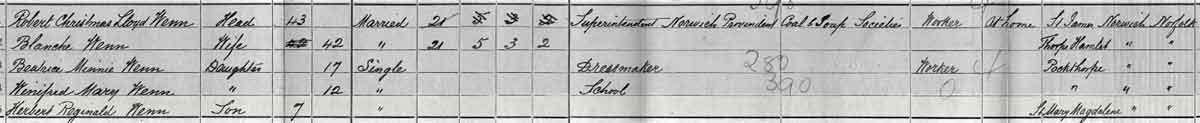 Robert Christmas Lloyd Wenn Head 43 Married 21 5 3 2 Superintendent Norwich Provident Coal & Soup Societies Worker At home St James Norwich Norfolk
Blanche Wenn Wife 42 42 " 21 5 3 2 Thorpe Hamlet " "
Beatrice Minnie Wenn Daughter 17 Single Dressmaker 280 Worker Pockthorpe " "
Winifred Mary Wenn " 12 " School 390 0 " " "
Herbert Reginald Wenn Son 7 " St Mary Magdalene " "